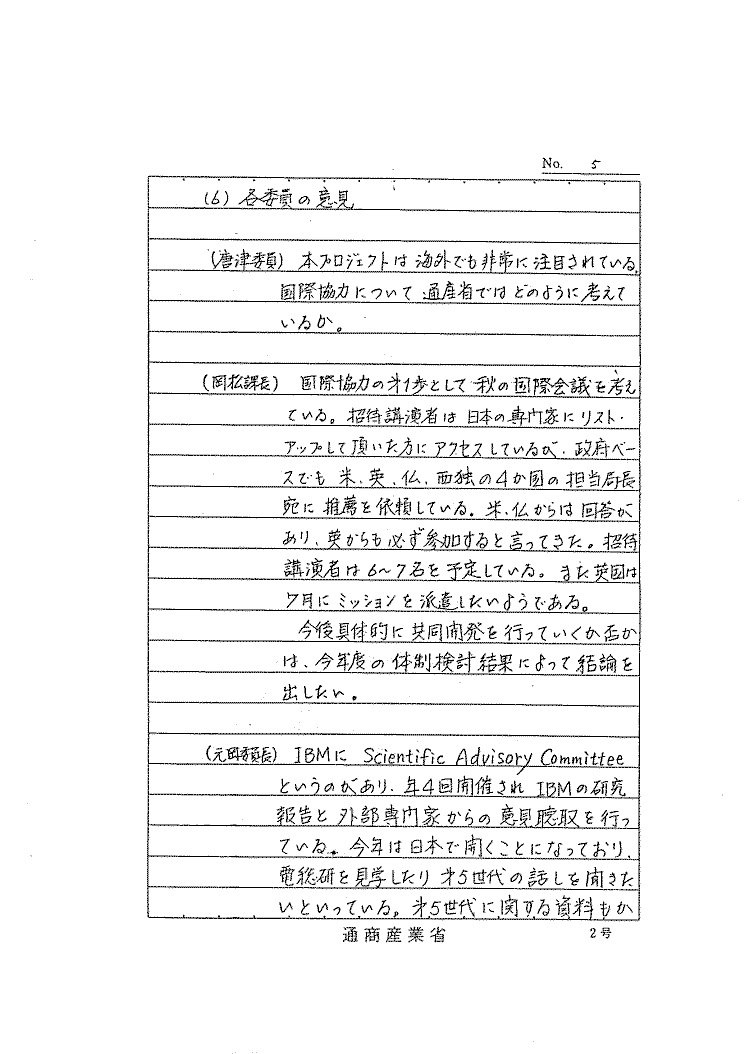 No. 5
(6) 各委員の意見
(唐津委員) 本プロジェクトは海外でも非常に注目されている。
国際協力について通産省ではどのように考えて
いるか。
(岡松課長) 国際協力の第1歩として秋の国際会議を考え
ている。招待講演者は日本の専門家にリスト・
アップして頂いた方にアクセスしているが、政府ベー
スでも米、英、仏、西独の4か国の担当局長
宛に推薦を依頼している。米、仏からは回答が
あり、英からも必ず参加すると言ってきた。招待
講演者は6〜7名を予定している。また英国は
7月にミッションを派遣したいようである。
今後具体的に共同開発を行っていくか否か
は、今年度の体制検討結果によって結論を
出したい。
(元岡委員長) IBMに Scientific Advisory Committee
というのがあり、年4回開催され IBMの研究
報告と外部専門家からの意見聴取を行っ
ている。今年は日本で開くことになっており、
電総研を見学したり第5世代の話しを聞きた
いといっている。第5世代に関する資料もか
通商産業省
2号